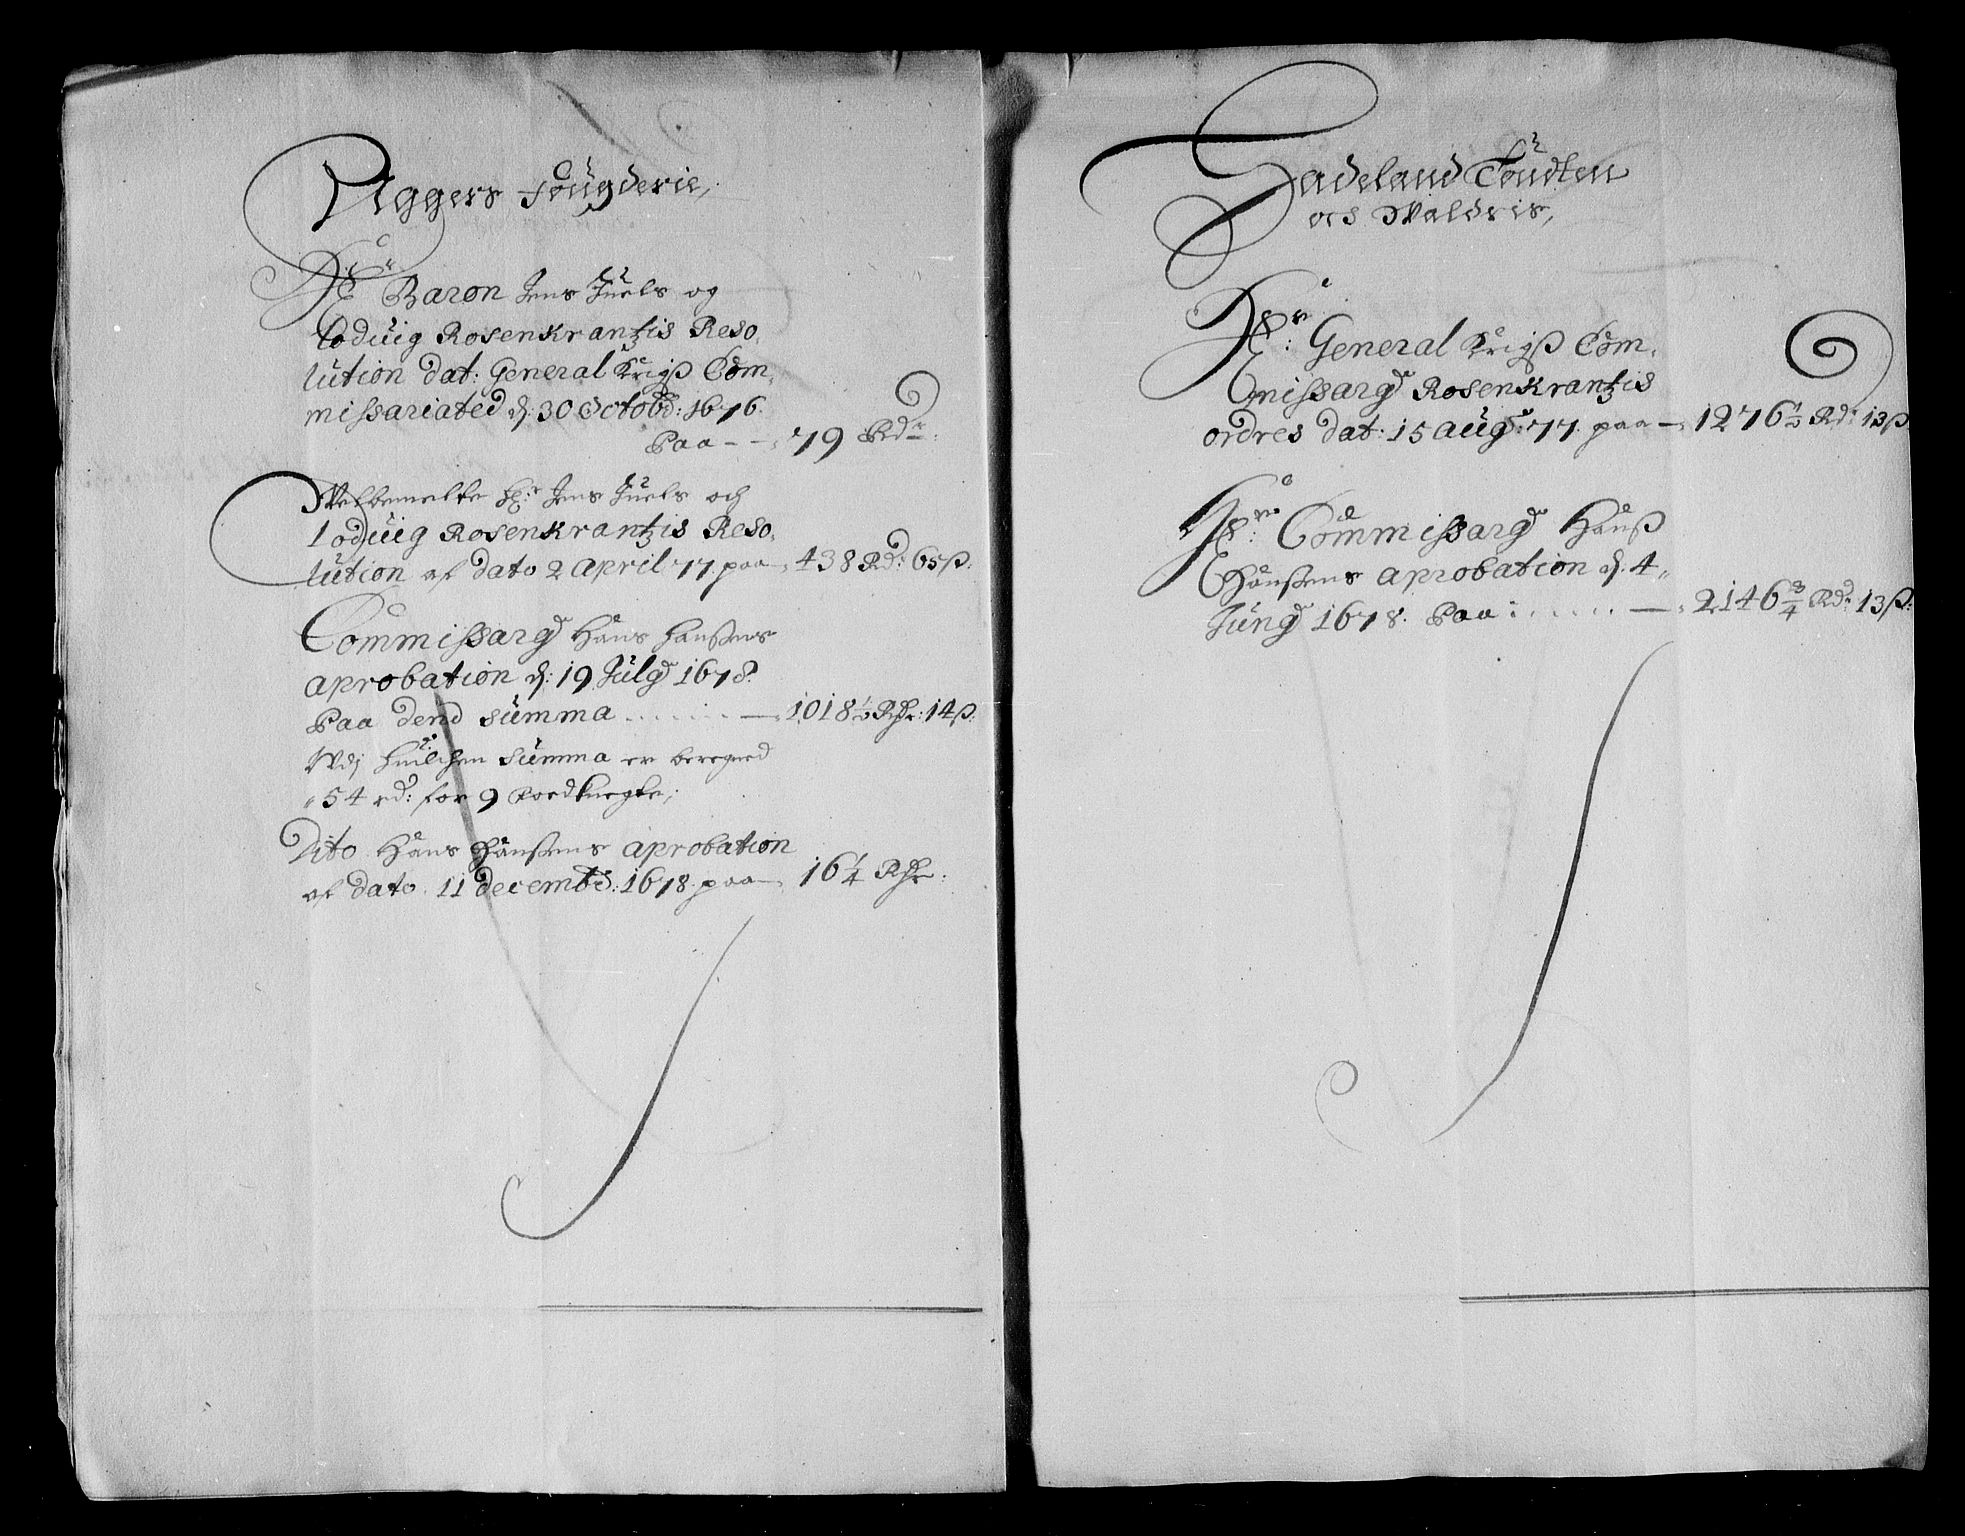 Aggers Fougderie,
Hr Baron Jens Juels og
Lodvig Rosenkrantzis Reso,
lution dat: General Krigß Com,
missariated d: 30 Octobr: 1676.
Paa - - 79 Rdr:
Velbemelte Hr: Jens Juels och
Lodvig Rosenkrantzis Reso,
lution af dato 2 April 77. paa - 438 Rd: 65 ß:
Commissarij Hans Hanßens
aprobation d: 19 Julij 1678.
Paa dend summa ...... - 1018½ Rdr: 14 ß:
Udj huilchen summa er beregned
54 rd: for 9 Roedknegte,
Dito Hans Hanßens aprobation
af dato 11 decembr: 1678. paa - 16¼ Rdr:
Hadeland Toudten
och Valdris,
Hr: General Krigß Com,
missarij Rosenkrantzis
ordres dat: 15 aug: 77. paa - 1276½ Rd: 13 ß
Hr: Commissarij Hanß
Hanßens aprobation d. 4
Junij 1678. Paa: ..... - 2146¾ Rd: 13 ß: